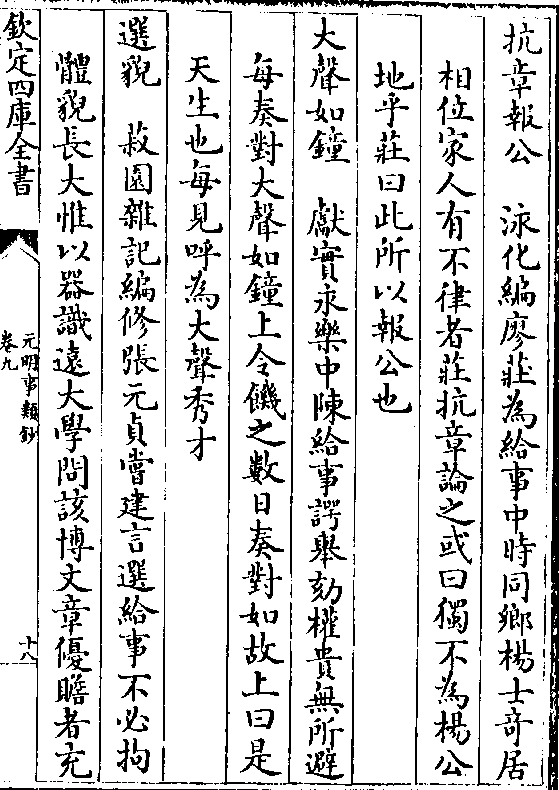 抗章報公　泳化編廖莊為給事中時同鄉楊士竒居
相位家人有不律者莊抗章論之或曰獨不為楊公
地乎莊曰此所以報公也
大聲如鐘　獻實永樂中陳給事諤舉劾權貴無所避
每奏對大聲如鐘上令饑之數日奏對如故上曰是
天生也每見呼為大聲秀才
選貌　菽園雜記編修張元貞嘗建言選給事不必拘
體貌長大惟以器識遠大學問該博文章優贍者充
欽定四庫全書
元明事類鈔
卷九
十八